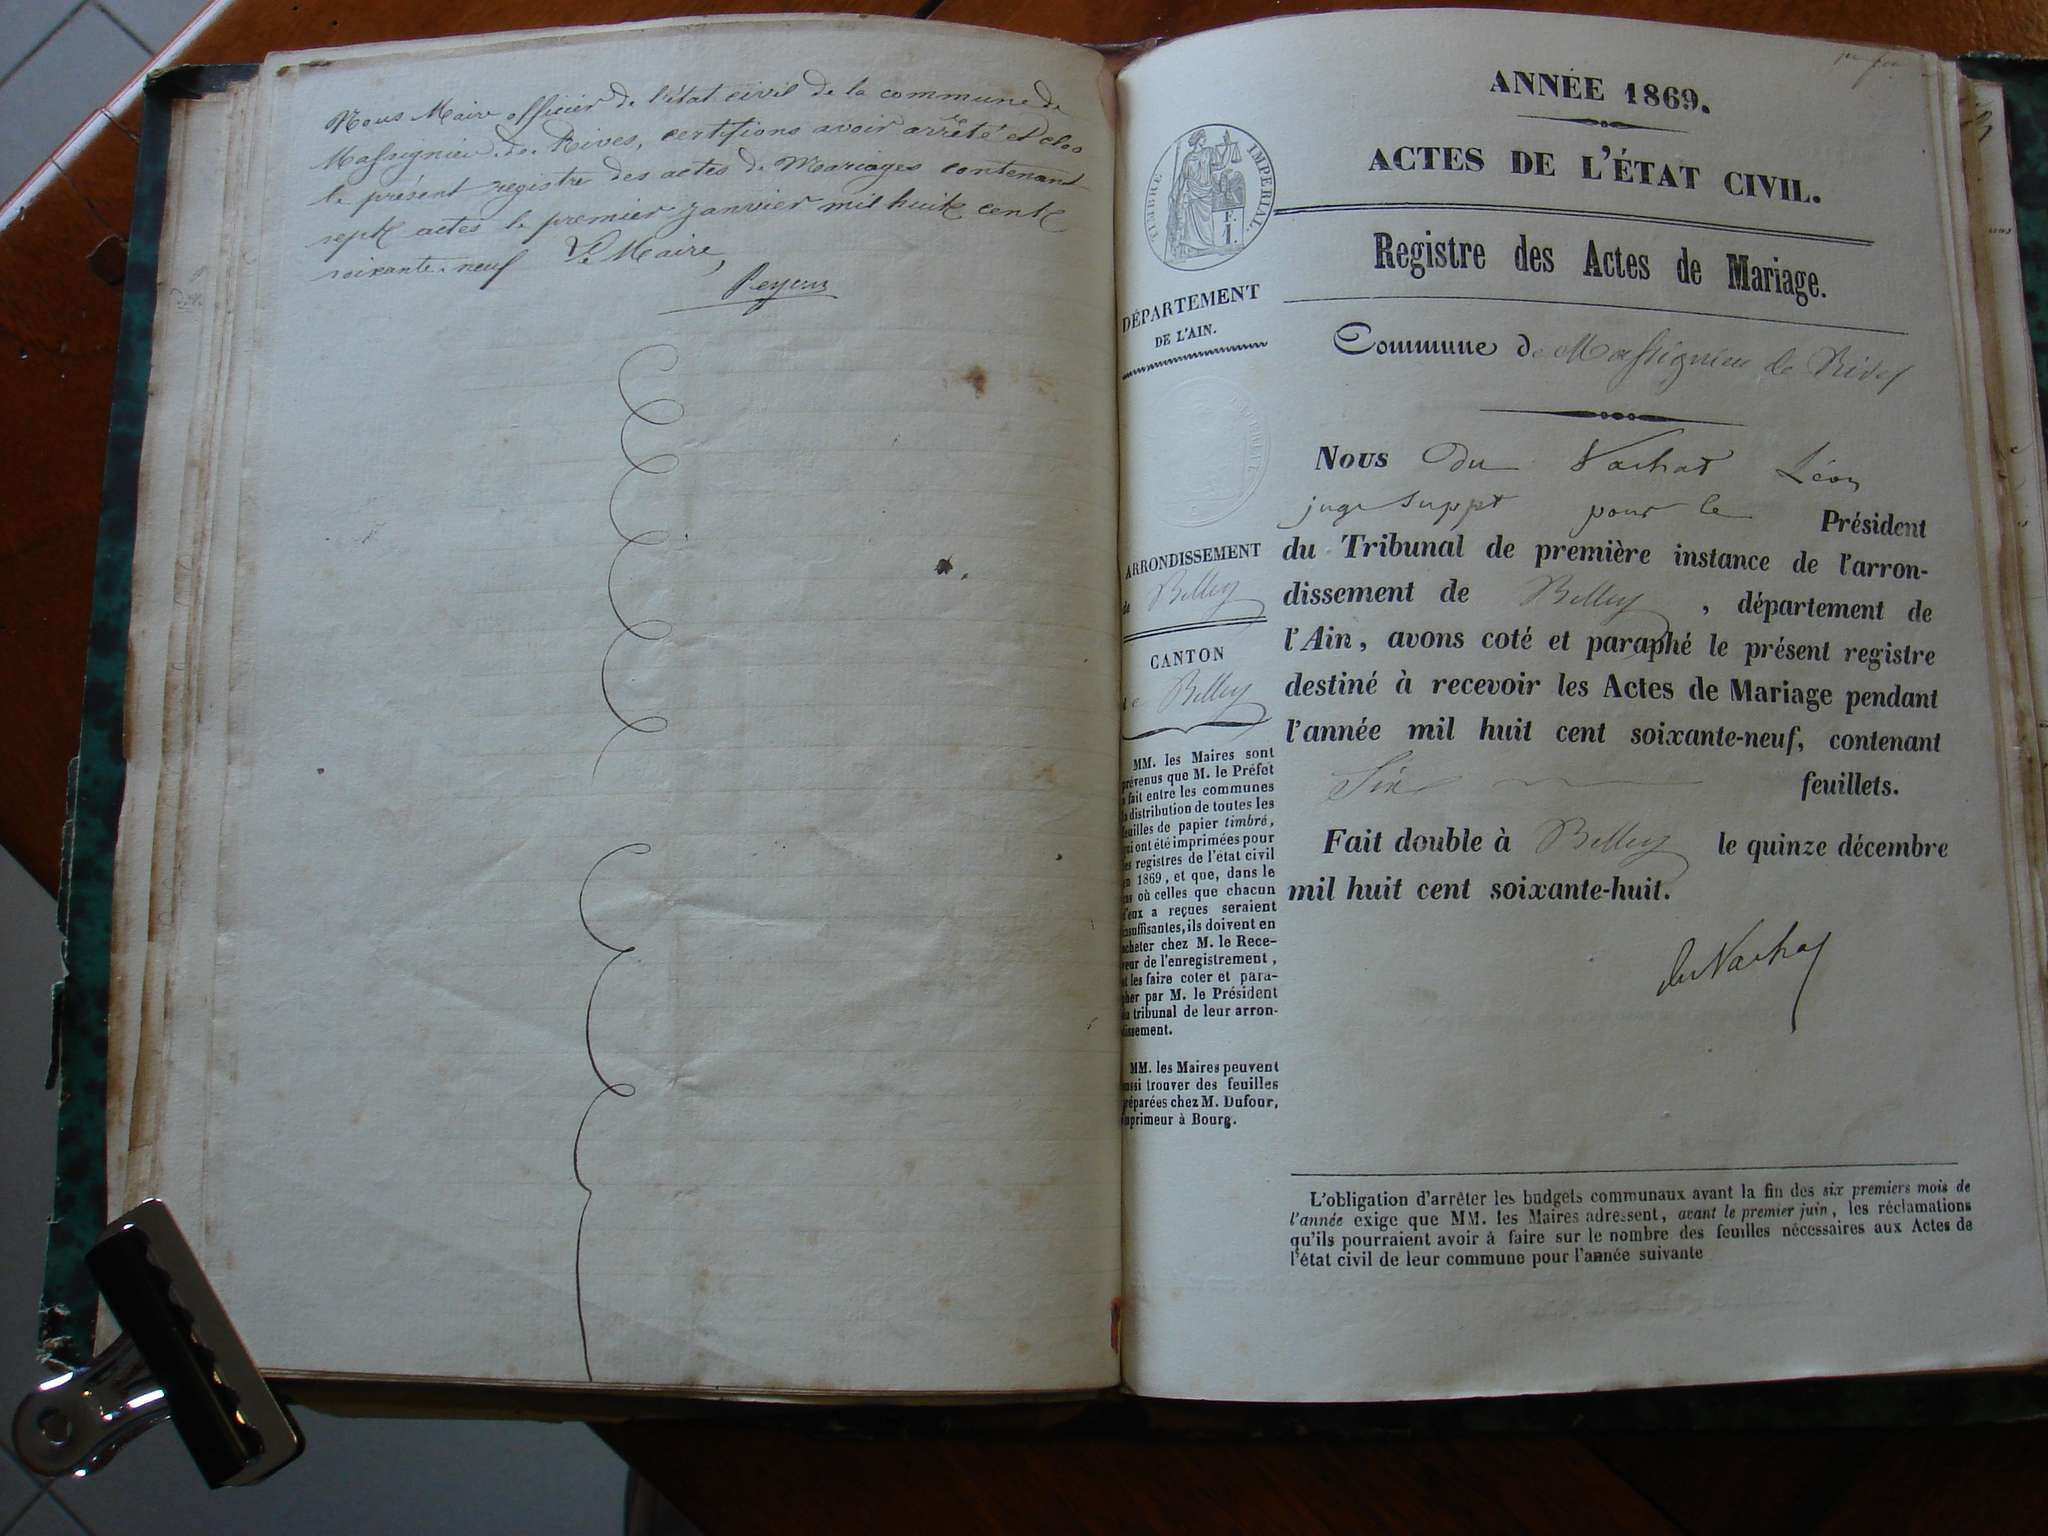 Nous Maire officier de l'état civil de la commune de
Massignieu de Rives, certifions avoir arrêté et clos
le présent registre des actes de Mariages contenant
sept actes le premier janvier mil huit cent
soixante-neuf Le Maire,
ANNÉE 1869.
ACTES DE L'ÉTAT CIVIL.
TIMBRE IMPERIAL.
Registre des Actes de Mariage.
DÉPARTEMENT
DE L'AIN.
Commune de Massignieu de Rives
ARRONDISSEMENT
de Belley
CANTON
de Belley
MM. les Maires sont
prévenus que M. le Préfet
a fait entre les communes
la distribution de toutes les
feuilles de papier timbré,
qui ont été imprimées pour
les registres de l'état civil
en 1869, et que, dans le
cas où celles que chacun
d'eux a reçues seraient
insuffisantes, ils doivent en
acheter chez M. le Rece-
veur de l'enregistrement,
et les faire coter et para-
pher par M. le Président
du tribunal de leur arron-
dissement.
MM. les Maires peuvent
aussi trouver des feuilles
préparées chez M. Dufour,
imprimeur à Bourg.
Nous du Vachat Léon
juge suppt pour le Président
du Tribunal de première instance de l'arron-
dissement de Belley, département de
l'Ain, avons coté et paraphé le présent registre
destiné à recevoir les Actes de Mariage pendant
l'année mil huit cent soixante-neuf, contenant
Six feuillets.
Fait double à Belley le quinze décembre
mil huit cent soixante-huit.
du Vachat
L'obligation d'arrêter les budgets communaux avant la fin des six premiers mois de
l'année exige que MM. les Maires adressent, avant le premier juin, les réclamations
qu'ils pourraient avoir à faire sur le nombre des feuilles nécessaires aux Actes de
l'état civil de leur commune pour l'année suivante